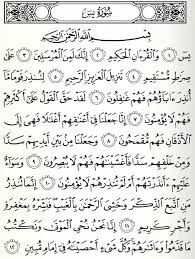 سُورَةُ يسٓ
بِسْمِ ٱللَّهِ ٱلرَّحْمَٰنِ ٱلرَّحِيمِ
يسٓ ١ وَٱلْقُرْءَانِ ٱلْحَكِيمِ ٢ إِنَّكَ لَمِنَ ٱلْمُرْسَلِينَ ٣ عَلَىٰ
صِرَٰطٍ مُّسْتَقِيمٍ ٤ تَنزِيلَ ٱلْعَزِيزِ ٱلرَّحِيمِ ٥ لِتُنذِرَ قَوْمًا مَّآ
أُنذِرَ ءَابَآؤُهُمْ فَهُمْ غَٰفِلُونَ ٦ لَقَدْ حَقَّ ٱلْقَوْلُ عَلَىٰٓ أَكْثَرِهِمْ
فَهُمْ لَا يُؤْمِنُونَ ٧ إِنَّا جَعَلْنَا فِىٓ أَعْنَٰقِهِمْ أَغْلَٰلًا فَهِىَ إِلَى
ٱلْأَذْقَانِ فَهُم مُّقْمَحُونَ ٨ وَجَعَلْنَا مِنۢ بَيْنِ أَيْدِيهِمْ سَدًّا
وَمِنْ خَلْفِهِمْ سَدًّا فَأَغْشَيْنَٰهُمْ فَهُمْ لَا يُبْصِرُونَ ٩ وَسَوَآءٌ
عَلَيْهِمْ ءَأَنذَرْتَهُمْ أَمْ لَمْ تُنذِرْهُمْ لَا يُؤْمِنُونَ ١٠ إِنَّمَا تُنذِرُ
مَنِ ٱتَّبَعَ ٱلذِّكْرَ وَخَشِىَ ٱلرَّحْمَٰنَ بِٱلْغَيْبِ فَبَشِّرْهُ بِمَغْفِرَةٍ
وَأَجْرٍ كَرِيمٍ ١١ إِنَّا نَحْنُ نُحْىِ ٱلْمَوْتَىٰ وَنَكْتُبُ
مَا قَدَّمُوا۟ وَءَاثَٰرَهُمْ وَكُلَّ شَىْءٍ أَحْصَيْنَٰهُ فِىٓ إِمَامٍ مُّبِينٍ ١٢